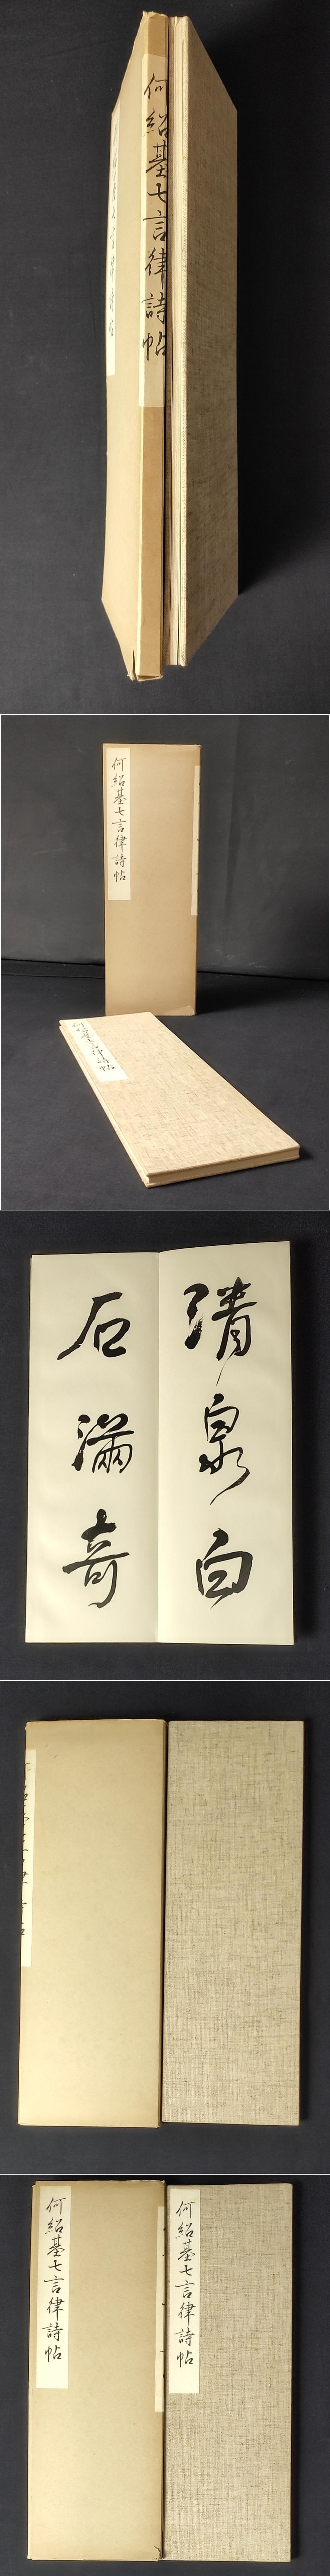 何紹基七言律詩帖
何紹基七言律詩帖
何紹基七言律詩帖
何紹基七言律詩帖
清泉白
石滿奇
何紹基七言律詩帖
何紹基七言律詩帖